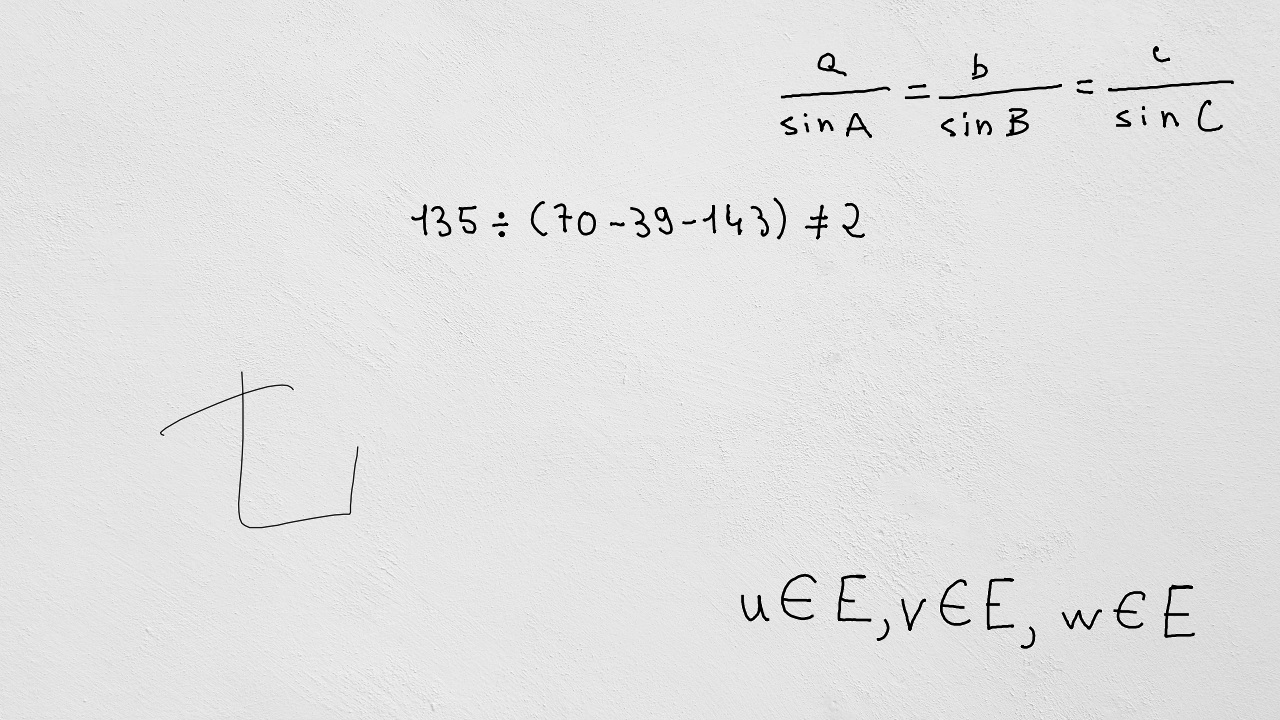 a/sin A = b/sin B = c/sin C
135 ÷ (70 - 39 - 143) ≠ 2
七
u ∈ E, v ∈ E, w ∈ E